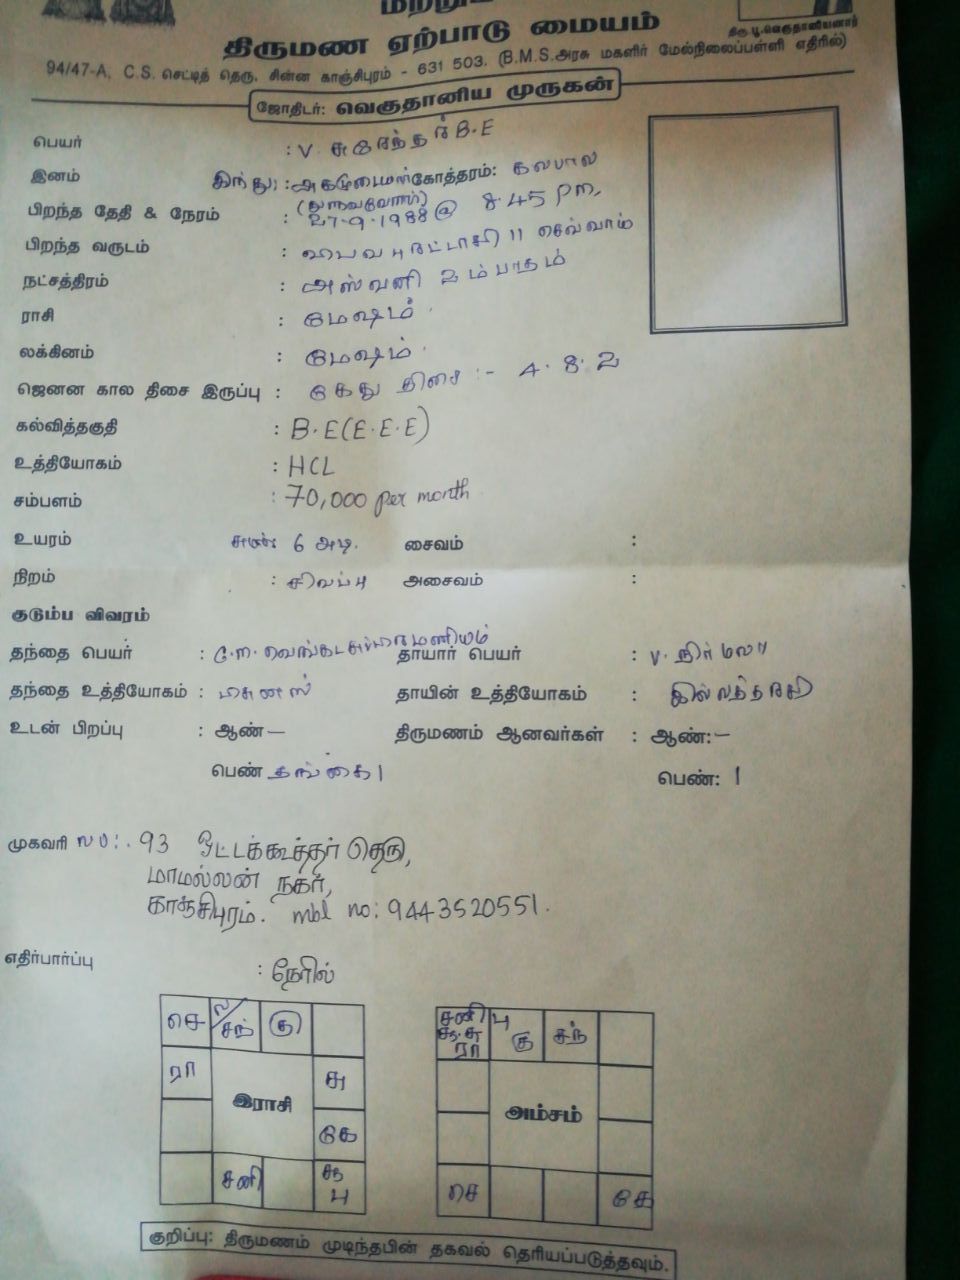 திருமண ஏற்பாடு மையம்
திரு.பூ.வெகுதானியனார்
94/47-A, C.S. செட்டித் தெரு, சின்ன காஞ்சிபுரம் - 631 503. (B.M.S.அரசு மகளிர் மேல்நிலைப்பள்ளி எதிரில்)
ஜோதிடர்: வெகுதானிய முருகன்
பெயர் : V. B.E
இனம் இந்து : கோத்தரம்:
பிறந்த தேதி & நேரம் : 27-9-1988 @ 8.45 Pm,
பிறந்த வருடம் : புரட்டாசி 11 செவ்வாய்
நட்சத்திரம் : அஸ்வனி 2 ம் பாதம்
ராசி : மேஷம்
லக்கினம் : மேஷம்
ஜெனன கால திசை இருப்பு : கேது திசை :- 4.8.2
கல்வித்தகுதி : B.E(E.E.E)
உத்தியோகம் : HCL
சம்பளம் : 70,000 per month
உயரம் 6 அடி. சைவம் :
நிறம் : சிவப்பு அசைவம் :
குடும்ப விவரம்
தந்தை பெயர் : தாயார் பெயர் : V. நிர்மலா
தந்தை உத்தியோகம் : தாயின் உத்தியோகம் : இல்லத்தரசி
உடன் பிறப்பு : ஆண் — திருமணம் ஆனவர்கள் : ஆண்: –
பெண் தங்கை 1 பெண்: 1
முகவரி No:. 93 ஒட்டக்கூத்தர் தெரு,
மாமல்லன் நகர்,
காஞ்சிபுரம். mbl no: 9443520551.
எதிர்பார்ப்பு : நேரில்
செ ல/சந் கு
ரா சு
இராசி
கே
சனி சுக் பு
சனி ரா பு கு சந்
அம்சம்
செ கே
குறிப்பு: திருமணம் முடிந்தபின் தகவல் தெரியப்படுத்தவும்.